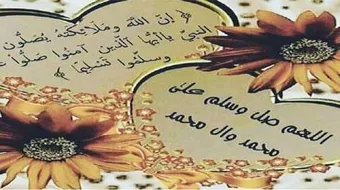 ﴿ إن الله وملائكته يصلون على
النبي يا أيها الذين آمنوا صلوا عليه
وسلموا تسليما ﴾
اللهم صل وسلم على
محمد وال محمد